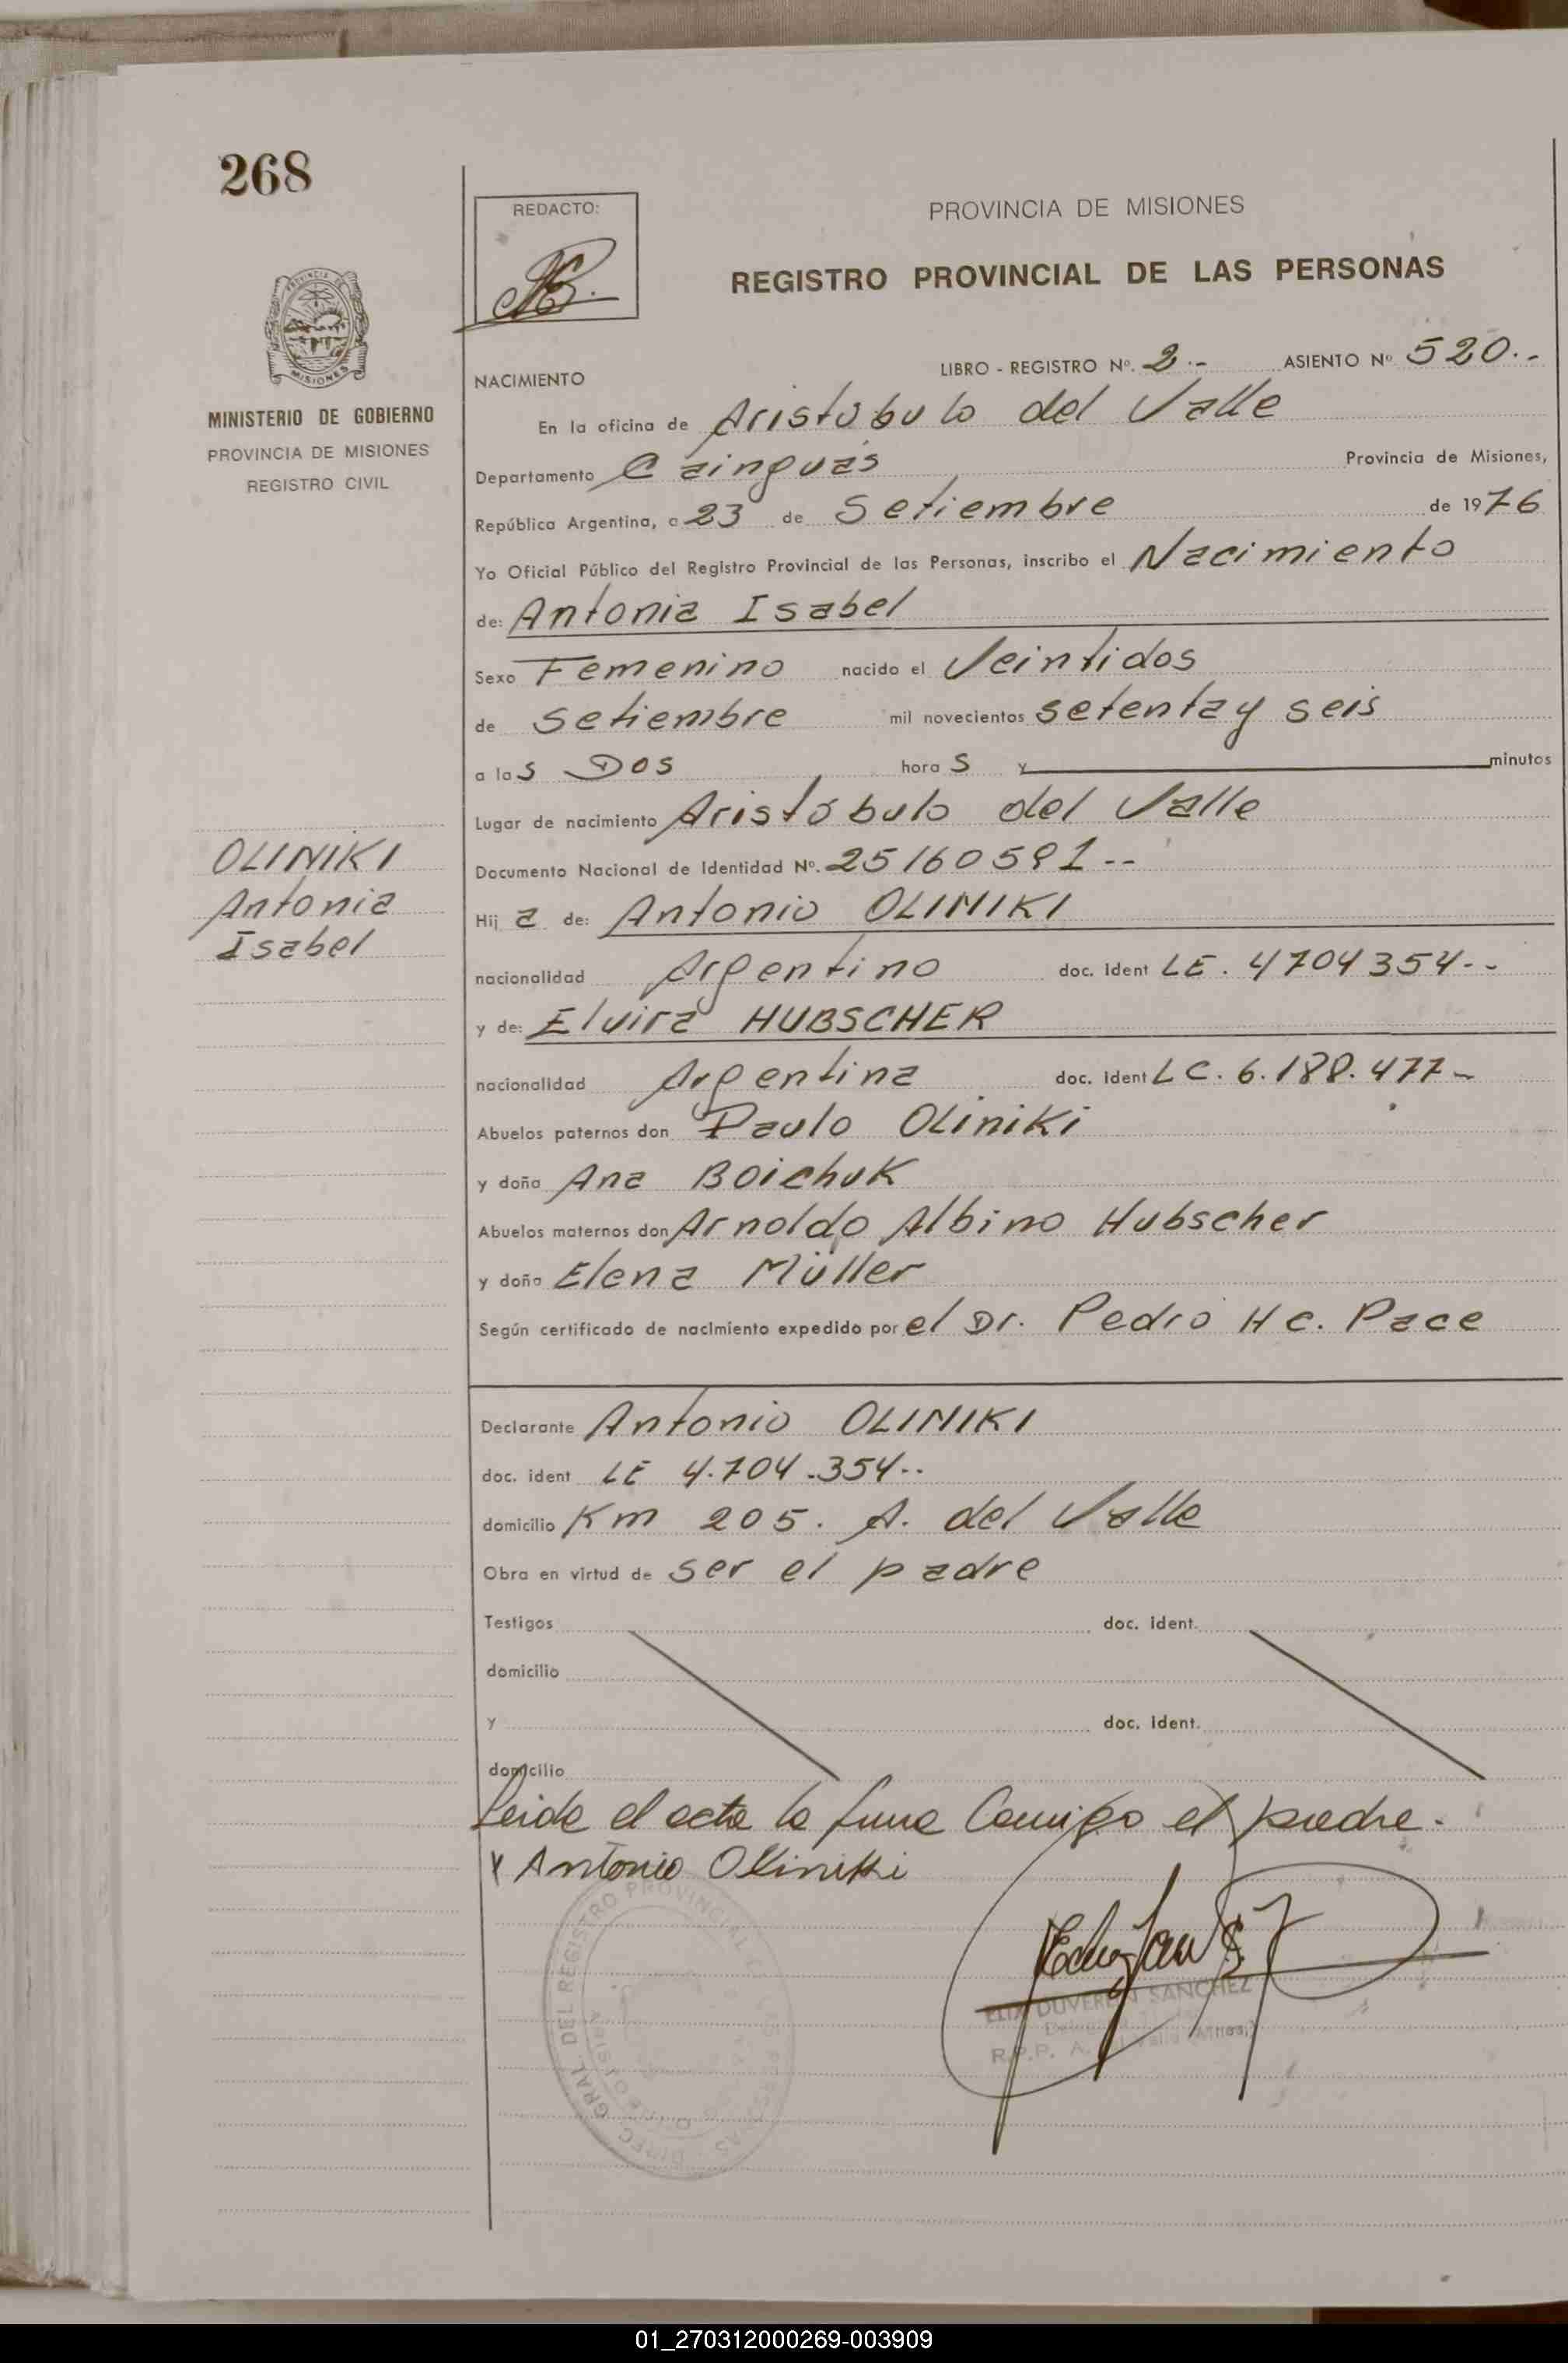 268
REDACTO:
PROVINCIA DE MISIONES
REGISTRO PROVINCIAL DE LAS PERSONAS
PROVINCIA
MISIONES
MINISTERIO DE GOBIERNO
PROVINCIA DE MISIONES
REGISTRO CIVIL
LIBRO - REGISTRO Nº. 2.- ASIENTO Nº 520.-
NACIMIENTO
En la oficina de Aristóbulo del Valle
Departamento Cainguás Provincia de Misiones,
República Argentina, a 23 de Setiembre de 1976
Yo Oficial Público del Registro Provincial de las Personas, inscribo el Nacimiento
de: Antonia Isabel
Sexo Femenino nacido el Veintidos
de Setiembre mil novecientos setenta y seis
a las Dos horas y minutos
Lugar de nacimiento Aristóbulo del Valle
Documento Nacional de Identidad Nº. 25160591--
OLINIKI
Antonia
Isabel
Hija de: Antonio OLINIKI
nacionalidad Argentino doc. ident LE. 4704354--
y de: Elvira HUBSCHER
nacionalidad Argentina doc. ident LC. 6.188.477-
Abuelos paternos don Paulo Oliniki
y doña Ana Boichuk
Abuelos maternos don Arnoldo Albino Hubscher
y doña Elena Müller
Según certificado de nacimiento expedido por el Dr. Pedro H C. Pace
Declarante Antonio OLINIKI
doc. ident LE 4.704.354--
domicilio Km 205. A. del Valle
Obra en virtud de ser el padre
Testigos doc. ident.
domicilio
y doc. ident.
domicilio
Leida el acta la firma Conmigo el padre.
x Antonio Oliniki
DIREC. GRAL. DEL REGISTRO PROVINCIAL DE LAS PERSONAS
SANCHEZ
R.P.P. A.
01_270312000269-003909